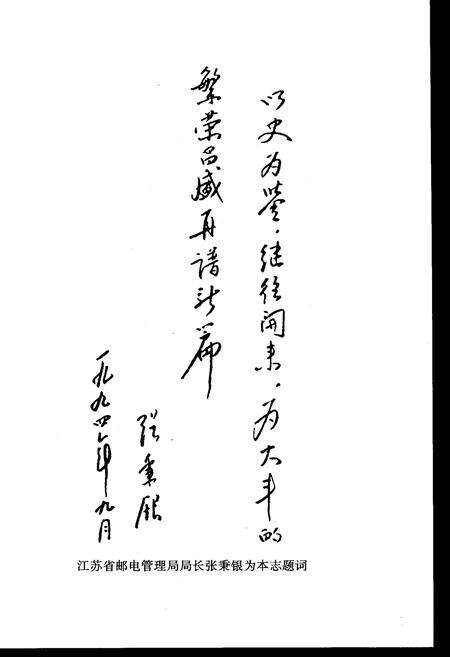 以史为鉴，继往开来，为大丰的
繁荣昌盛再谱新篇
张秉银
一九九四年九月
江苏省邮电管理局局长张秉银为本志题词